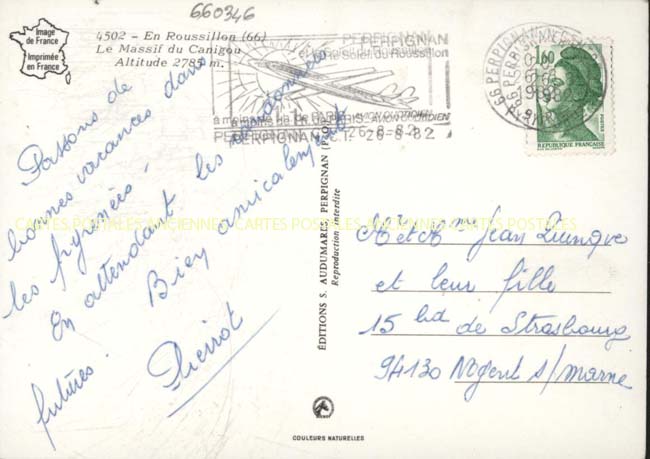 660346
Image
de France
Imprimée
en France
4502 - En Roussillon (66)
Le Massif du Canigou
Altitude 2785 m.
PERPIGNAN
et le Soleil du Roussillon
à moins de 1 h de PARIS
PERPIGNAN
26-8-82
66 PERPIGNAN
1,60
REPUBLIQUE FRANÇAISE
Passons de
bonnes vacances dans
les pyrénées.
En attendant les randonnées
futures. Bien amicalement
Pierrot
CARTES POSTALES ANCIENNES CARTES POSTALES
ÉDITIONS S. AUDUMARES, PERPIGNAN
Reproduction interdite
Jean
et leur fille
15 bd de Strasbourg
94130 Nogent s/ marne
COULEURS NATURELLES